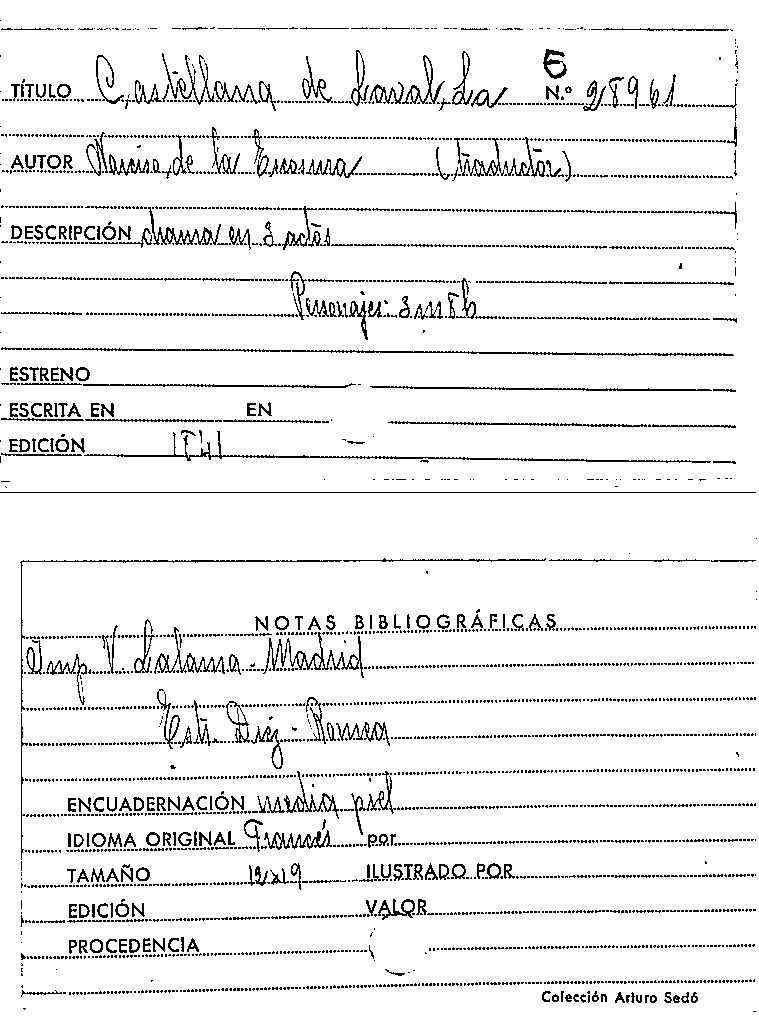 6
TÍTULO Castellana de Laval, La N.º 28961
AUTOR Narciso de la Escosura (traductor)
DESCRIPCIÓN drama en 3 actos
Personajes: 3 m 8 h
ESTRENO
ESCRITA EN EN
EDICIÓN 1841
NOTAS BIBLIOGRÁFICAS
Imp. V. Lalama - Madrid
Estr. Diez - Romea
ENCUADERNACIÓN media piel
IDIOMA ORIGINAL Francés por
TAMAÑO 12x19 ILUSTRADO POR
EDICIÓN VALOR
PROCEDENCIA
Colección Arturo Sedó